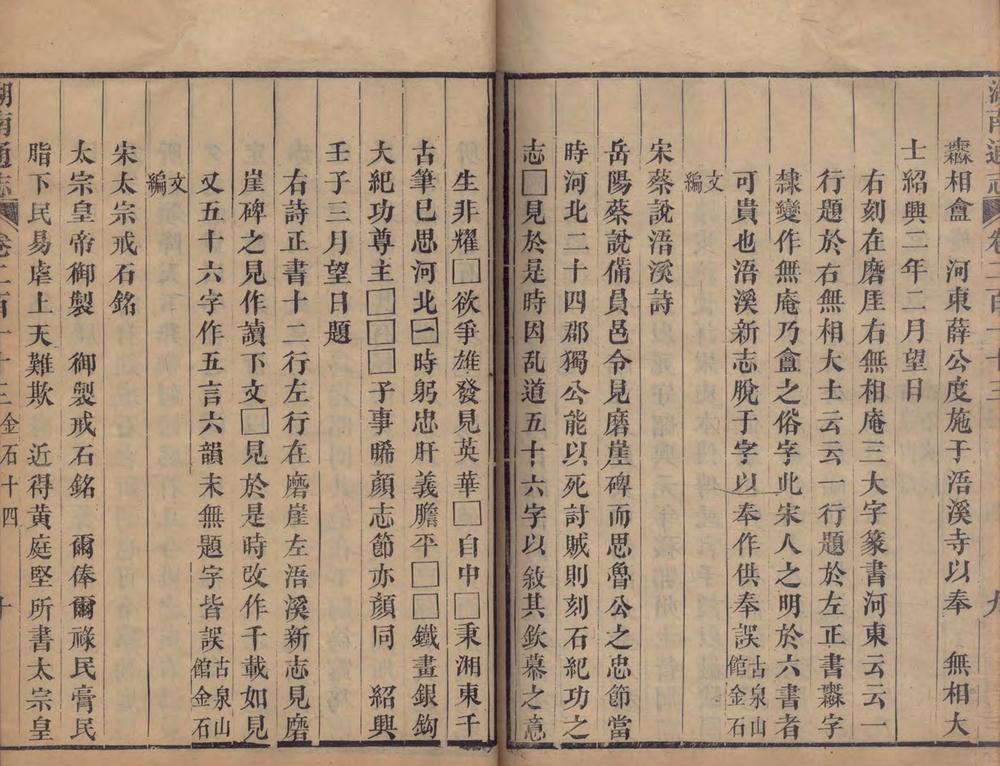 湖南通志 卷二百七十三 九
橆相盦 河東薛公度施于浯溪寺以奉 無相大
士紹興二年二月望日
右刻在磨厓右無相庵三大字篆書河東云云一
行題於右無相大士云云一行題於左正書橆字
隸變作無庵乃盦之俗字此宋人之明於六書者
可貴也浯溪新志脫于字以奉作供奉誤古泉山館金石
文編
宋蔡說浯溪詩
岳陽蔡說備員邑令見磨崖碑而思魯公之忠節當
時河北二十四郡獨公能以死討賊則刻石紀功之
志□見於是時因乱道五十六字以敘其欽慕之意
生非耀□欲爭雄發見英華□自中□秉湘東千
古筆已思河北一時躬忠肝義膽平□□鐵畫銀鉤
大紀功尊主□□□子事睎顏志節亦顏同 紹興
壬子三月望日題
右詩正書十二行左行在磨崖左浯溪新志見磨
崖碑之見作讀下文□見於是時改作千載如見
又五十六字作五言六韻末無題字皆誤古泉山館金石
文編
宋太宗戒石銘
太宗皇帝御製 御製戒石銘 爾俸爾祿民膏民
脂下民易虐上天難欺 近得黃庭堅所書太宗皇
湖南通志 卷二百七十三 金石十四 十